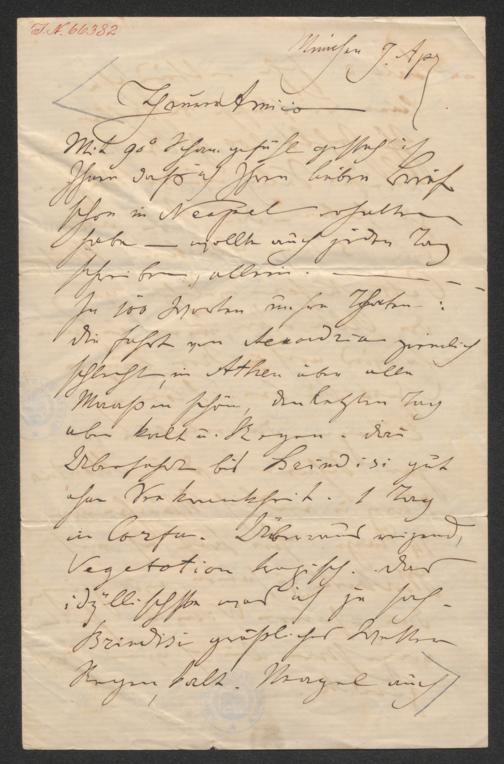 I.N. 66382
München 7. Apr
Theurer Amico
Mit 90° Schamgefühl gesteh ich
Ihnen daß ich Ihren lieben Brief
schon in Neapel erhalten
habe – wollte auch jeden Tag
schreiben, allein. –
In 100 Worten unsere Thaten:
die Fahrt von Alexandria ziemlich
schlecht, in Athen über alle
Maaßen schön, den letzten Tag
aber kalt u. Regen. Die
Überfahrt bis Brindisi gut
ohne Seekrankheit. 1 Tag
in Corfu. Überaus reizend,
Vegetation tropisch. Das
idyllischste was ich je sah.
Brindisi gräßliches Wetter
Regen, kalt. Neapel auch